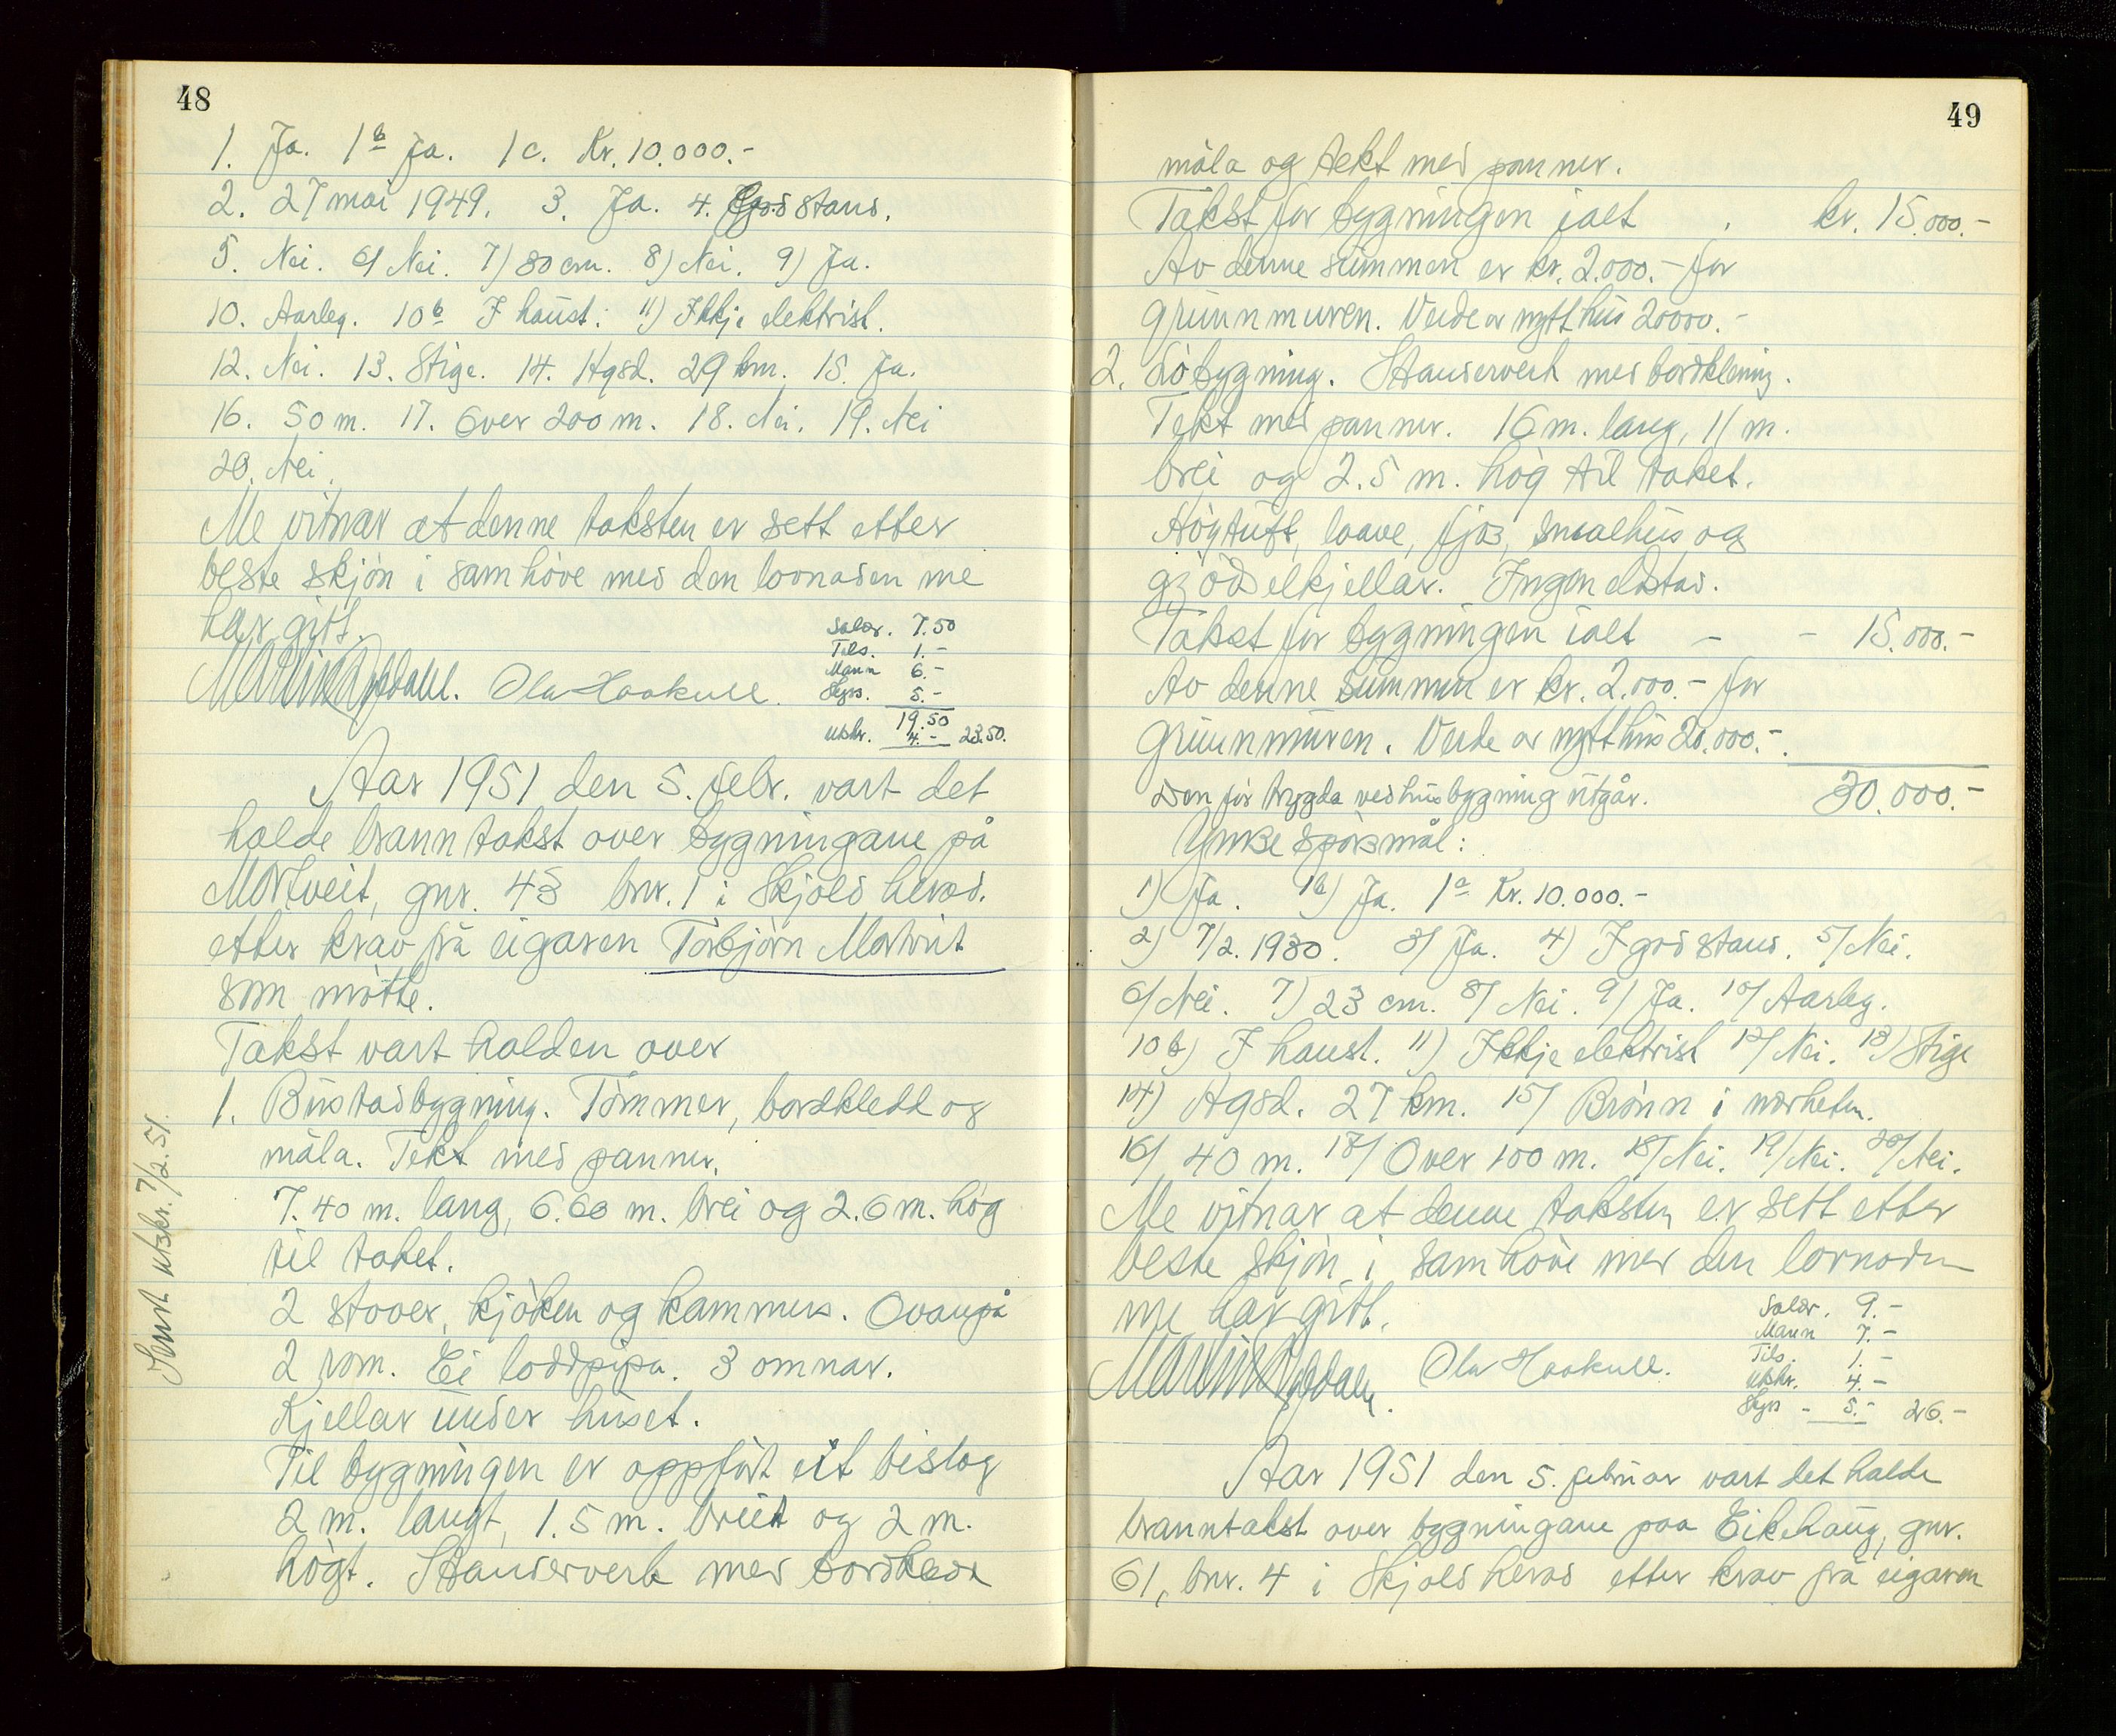 48
1. Ja. 1b Ja. 1c. Kr. 10.000.-
2. 27 mai 1949. 3. Ja. 4. stand.
5. Nei. 6) Nei. 7) 30 cm. 8) Nei. 9) Ja.
10. Aarleg. 10b I haust. 11) Ikkje elektrisk.
12. Nei. 13. Stige. 14. Hgsd. 29 km. 15. Ja.
16. 50 m. 17. Over 200 m. 18. Nei. 19. Nei
20. Nei.
Me vitnar at denne taksten er sett etter
beste skjön i samhöve med den lovnaden me
har gitt.
Ola Haakull.
Salær. 7.50
Tils. 1.-
Mann 6.-
Skyss. 5.-
19.50
utskr. 4.- 23.50.
Aar 1951 den 5. febr. vart det
halde branntakst over bygningane på
Mortveit, gnr. 43 bnr. 1 i Skjold herad.
etter krav frå eigaren Torbjörn Mortveit
som mötte.
Takst vart halden over
1. Bustadbygning. Tömmer, bordkledd og
måla. Tekt med panner.
7.40 m. lang, 6.60 m. brei og 2.6 m. hög
til taket.
2 stover, kjöken og kammers. Ovanpå
2 rom. Ei loddpipa. 3 omnar.
Kjellar under huset.
Til bygningen er oppfört eit bislag
2 m. langt, 1.5 m. breidt og 2 m.
högt. Standerverk med bordkledd
Sendt utskr. 7/2.51.
49
måla og tekt med panner.
Takst for bygningen ialt kr. 15.000.-
Av denne summen er kr. 2.000.- for
grunnmuren. Verde av nytt hus 20000.-
2. Löbygning. Standerverk med bordklening.
Tekt med panner. 16 m. lang, 11 m.
brei og 2.5 m. hög til taket.
Höytuft, loave, fjos, smalhus og
gjödselkjellar. Ingen eldstad.
Takst for bygningen ialt - - 15.000.-
Av denne summen er kr. 2.000.- for
grunnmuren. Verde av nytt hus 20.000.-.
Den for brygda ved husbygning utgår. 30.000.-
Ymse spörsmål:
1) Ja. 1b) Ja. 1c Kr. 10.000.-
2) 7/2. 1930. 3) Ja. 4) I god stand. 5) Nei.
6) Nei. 7) 23 cm. 8) Nei. 9) Ja. 10) Aarleg.
10b) I haust. 11) Ikkje elektrisk 12) Nei. 13) Stige
14) Hgsd. 27 km. 15) Brönn i nærheten.
16) 40 m. 17) Over 100 m. 18) Nei. 19) Nei. 20) Nei.
Me vitnar at denne taksten er sett etter
beste skjön i samhöve med den lovnaden
me har gitt.
Ola Haakull.
Salær. 9.-
Mann 7.-
Tils. 1.-
utskr. 4.-
Skyss - 5.- 26.-
Aar 1951 den 5. februar vart det halde
branntakst over bygningane paa Eikehaug, gnr.
61, bnr. 4 i Skjold herad etter krav frå eigaren